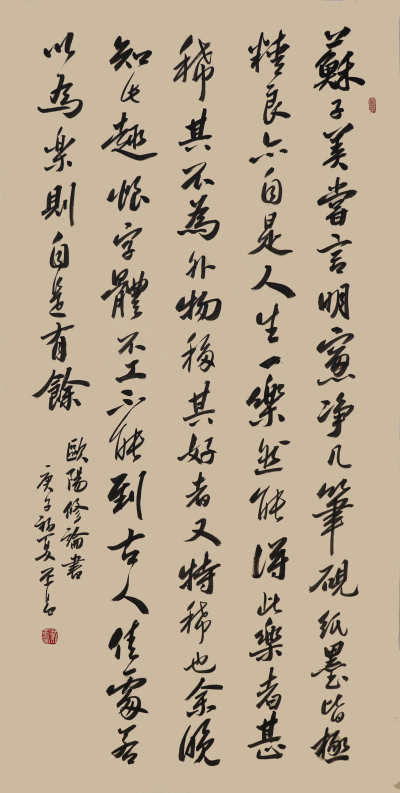 蘇子美嘗言明窗净几筆硯紙墨皆極
精良亦自是人生一樂然能得此樂者甚
稀其不為外物移其好者又特稀也余晚
知此趣恨字體不工不能到古人佳處若
以為樂則自是有餘
歐陽修論書
庚子初夏平昌